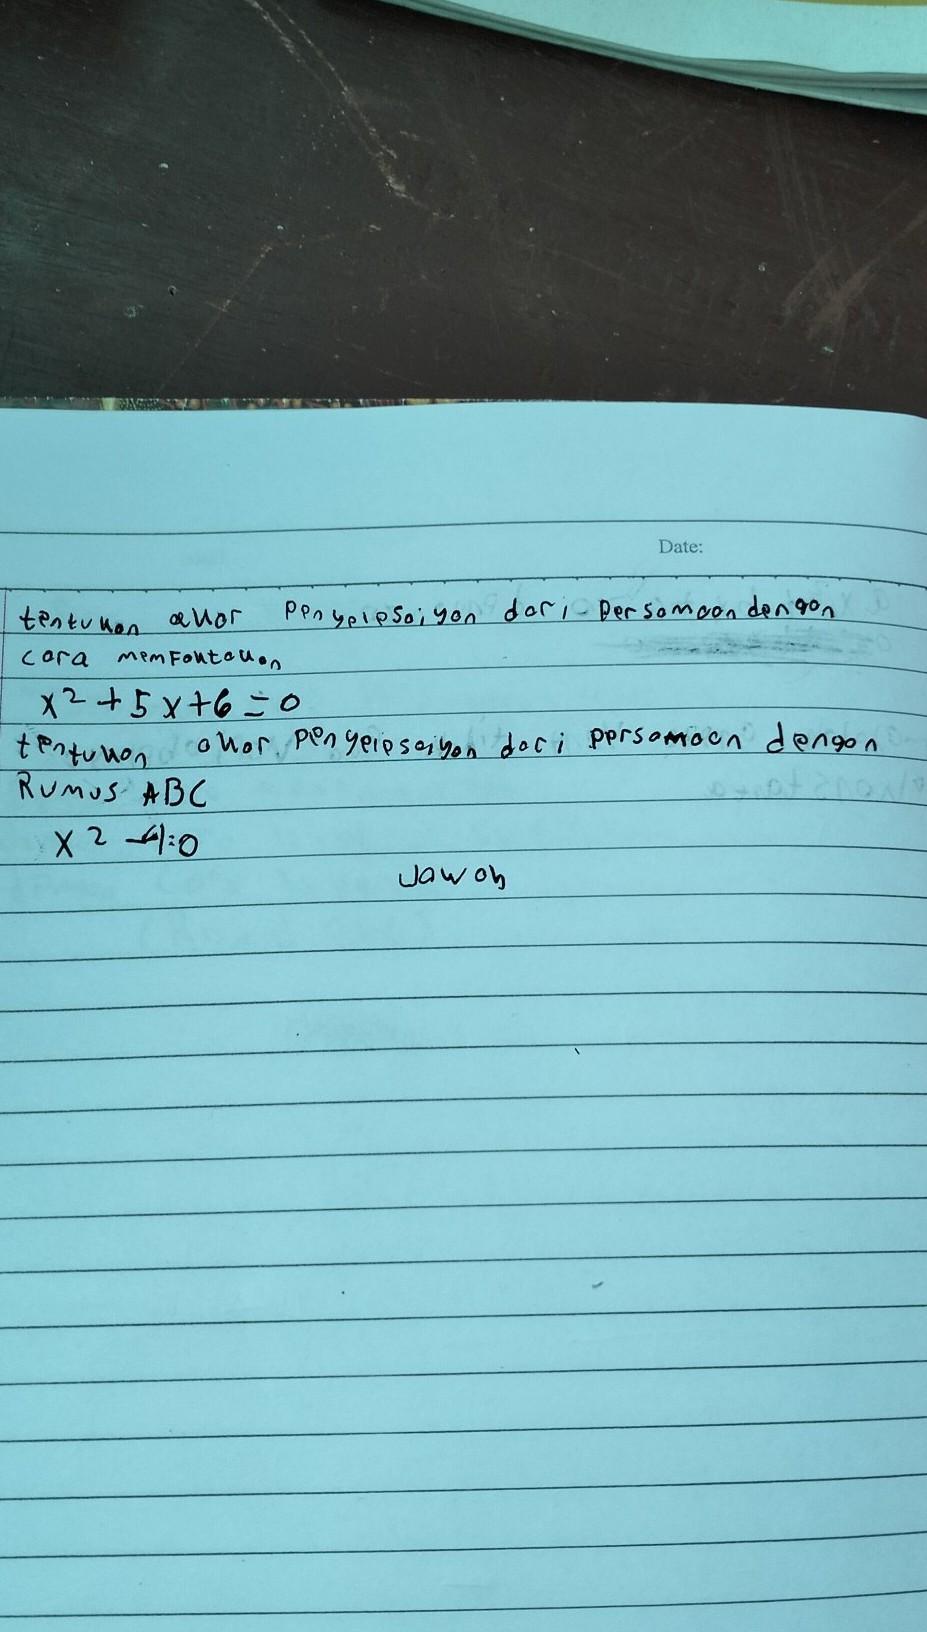 Date:
tentukan akar penyelesaiyan dari persamaan dengan
cara memfaktakan
x2 + 5x + 6 = 0
tentukan akar penyelesaiyan dari persamaan dengan
Rumus ABC
x2 - 4 = 0
Jawab